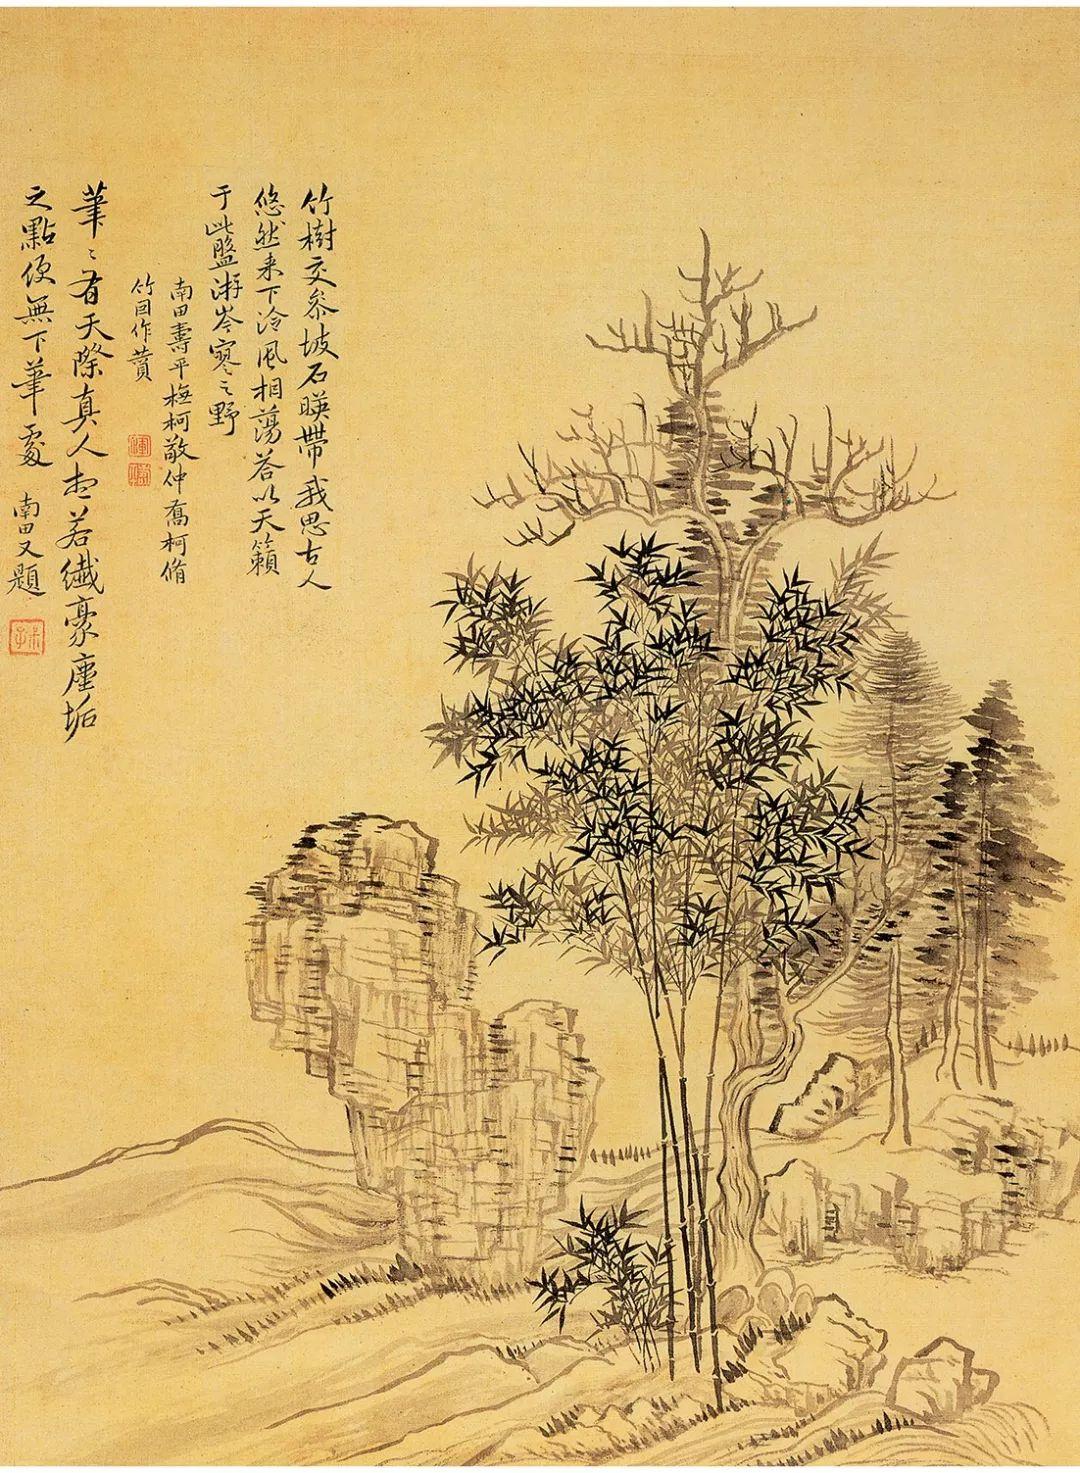 竹樹交參坡石暎帶我思古人
悠然来下泠風相蕩答以天籟
于此盤游岑寥之野
南田壽平橅柯敬仲喬柯脩
竹因作贊
筆〻有天際真人想若纎豪塵垢
之點便無下筆處
南田又題